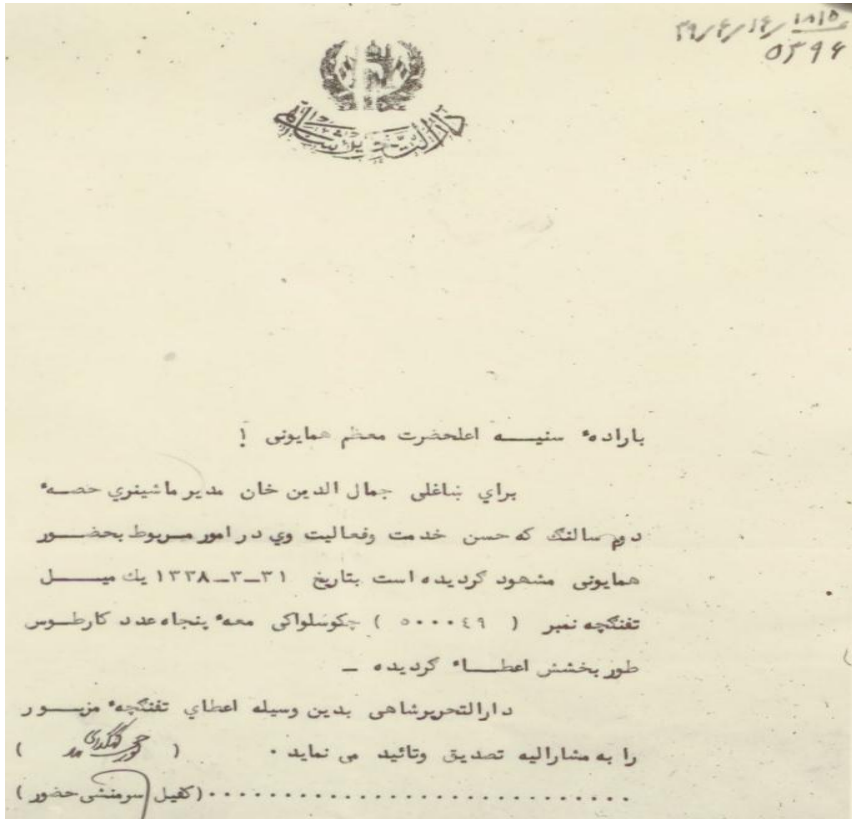 ۳۹/۴/۱۴/ ۱۸۱۵
۵۳۹۴
دارالتحریر شاهی
باراده ٔ سنیــه اعلحضرت معظم همایونی !
برای ښاغلی جمال الدین خان مدیر ماشینری حصــه ٔ
دوم سالنگ که حسن خدمت وفعالیت وی در امور مربوط بحضــور
همایونی مشهود گردیده است بتاریخ ۳۱ــ۳ــ۱۳۳۸ یک میــل
تفنگچه نمبر ( ۵۰۰۰٤۹ ) چکوسلواکی معه ٔ پنجاه عدد کارطــوس
طور بخشش اعطــاء گردیده ــ
دارالتحریر شاهی بدین وسیله اعطای تفنگچه ٔ مزبــور
را به مشارالیه تصدیق وتائید می نماید ۰ ( )
..............................(کفیل سرمنشی حضور )